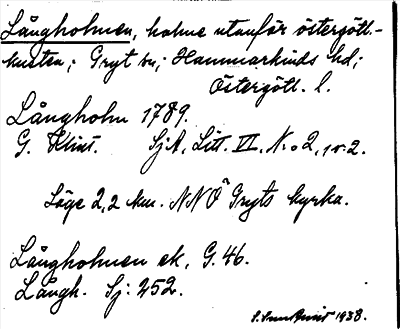 Långholmen, holme utanför östergötl.-
kusten; Gryt sn; Hammarkinds hd;
Östergötl. l.
Långholm 1789.
G. Klint. SjA, Litt. VI. N:o 2, 1 v. 2.
Läge 2,2 km. NNÖ Gryts kyrka.
Långholmen ek. G. 46.
Långh. Sj: 252.
1938.